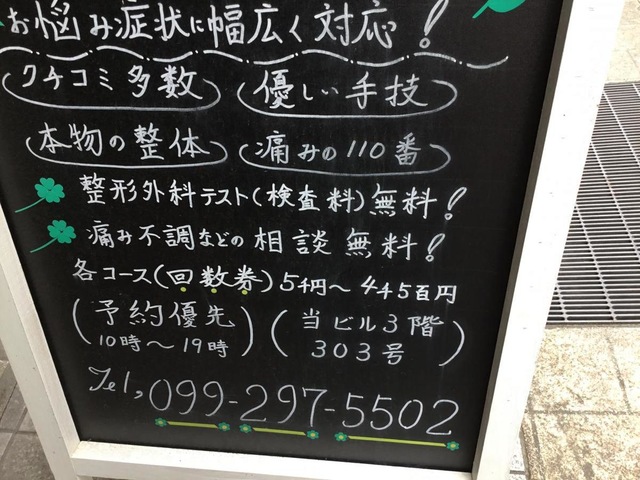 お悩み症状に幅広く対応!
クチコミ多数 優しい手技
本物の整体 痛みの110番
整形外科テスト(検査料)無料!
痛み不調などの相談無料!
各コース(回数券)5千円～4千5百円
(予約優先 10時～19時)
(当ビル3階 303号)
Tel, 099-297-5502